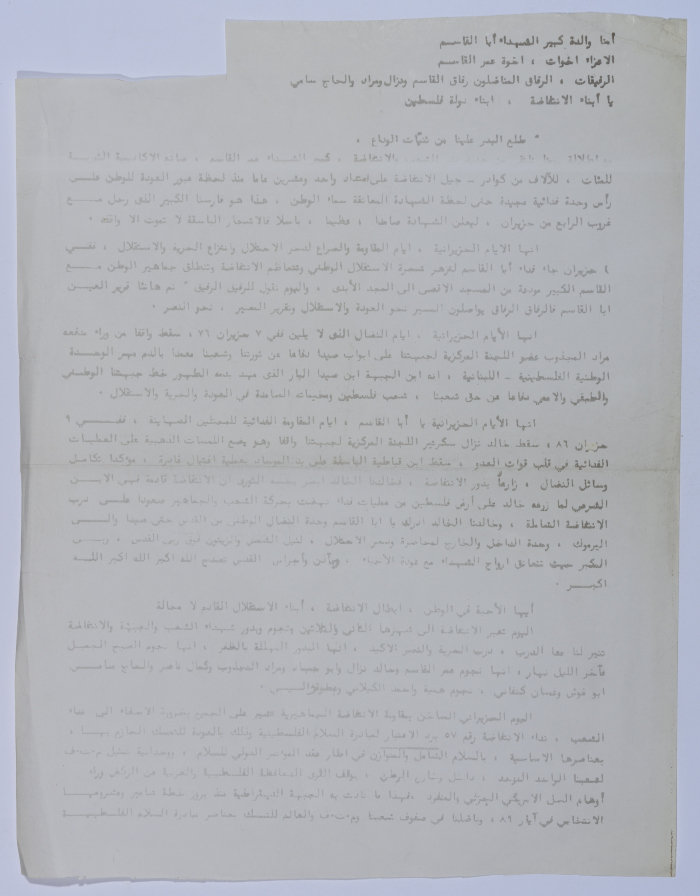 أمنا والدة كبير الشهداء أبا القاسم
الاعزاء اخوات ، اخوة عمر القاسم
الرفيقات ، الرفاق المناضلون رفاق القاسم ونزال ومراد والحاج سامي
يا أبناء الانتفاضة ، ابناء دولة فلسطين
" طلع البدر علينا من ثنيات الوداع .
الشعب والانتفاضة ، كبير الشهداء عمر القاسم ،
للمئات ، للآلاف من كوادر - جيل الانتفاضة على امتداد واحد وعشرين عاما منذ لحظة عبور العودة للوطن على
رأس وحدة فدائية مجيدة حتى لحظة الشهادة المعانقة سماء الوطن . هذا هو فارسنا الكبير الذى رحل مع
غروب الرابع من حزيران ، ليعلن الشهادة صامدا ، عظيما ، باسلا فالاشجار الباسقة لا تموت الا واقفة .
انها الايام الحزيرانية ، ايام المقاومة والصراع لدحر الاحتلال وانتزاع الحرية والاستقلال ، ففي
٤ حزيران جاء فداء أبا القاسم لتزهر شجرة الاستقلال الوطني وتتعاظم الانتفاضة وتنطلق جماهير الوطن مع
القاسم الكبير مودعة من المسجد الاقصى الى المجد الأبدى ، واليوم نقول للرفيق الرفيق " نم هانئا قرير العين
ابا القاسم فالرفاق الرفاق يواصلون السير نحو العودة والاستقلال وتقرير المصير . نحو النصر .
انها الأيام الحزيرانية . ايام النضال الذى لا يلين ففي ٧ حزيران ٧٦ ، سقط واقفا من وراء مدفعه
مراد المجذوب عضو اللجنة المركزية لجبهتنا على ابواب صيدا دفاعا عن ثورتنا وشعبنا معمدا بالدم مهر الوحدة
الوطنية الفلسطينية - اللبنانية ، انه ابن الجبهة ابن صيدا البار الذى مهد بدمه الطهور خط جبهتنا الوطني
والطبقي والاممي دفاعا عن حق شعبنا ، شعب فلسطين ومخيمات الصامدة في العودة والحرية والاستقلال .
انها الأيام الحزيرانية يا أبا القاسم ، ايام المقاومة الفدائية للمحتلين الصهاينة ، ففي ٩
حزيران ٨٦ ، سقط خالد نزال سكرتير اللجنة المركزية لجبهتنا واقفا وهو يضع اللمسات الذهبية على العمليات
الفدائية في قلب قوات العدو ، سقط ابن قباطية الباسلة على يد الموساد بعملية اغتيال قادرة ، مؤكدا تكامل
وسائل النضال ، زارعاً بذور الانتفاضة ، فخالدنا الخالد
الشرعي لما زرعه خالد على أرض فلسطين من عمليات فداء نهضت بحركة الشعب والجماهير صعودا على درب
الانتفاضة الشاملة ، وخالدنا الخالد ادرك يا ابا القاسم وحدة النضال الوطني من القدس حتى صيدا والى
اليرموك ، وحدة الداخل والخارج لمحاصرة ودحر الاحتلال .
المكبر حيث تتعانق ارواح الشهداء مع عودة الأحياء ، ومآذن وأجراس القدس تصدح الله أكبر الله أكبر الله
اكبر .
أيها الأحبة في الوطن ، ابطال الانتفاضة ، أبناء الاستقلال القادم لا محالة
اليوم تعبر الانتفاضة الى شهرها الثاني والثلاثين ونجوم وبدور شهداء الشعب والجبهة والانتفاضة
تنير لنا هذا الدرب ، درب الحرية والنصر الاكيد . انها البدور المهللة بالظفر ، انها نجوم الصبح الجميل
فآخر الليل نهار ، انها نجوم عمر القاسم وخالد نزال وابو جهاد ومراد المجذوب وكمال ناصر والحاج سامي
ابو غوش وغسان كنفاني ، نجوم هنية واحمد الكيلاني وبطولة السيس .
اليوم الحزيراني الساخن بمقاومة الانتفاضة الجماهيرية نصر على الجميع بضرورة الاصغاء الى نداء
الشعب ، نداء الانتفاضة رقم ٥٧ برد الاعتبار لمبادرة السلام الفلسطينية وذلك بالعودة للتمسك الحازم بها ،
بعناصرها الاساسية ، بالسلام الشامل والمتوازن في اطار عقد المؤتمر الدولي للسلام ، ووحدانية تمثيل م.ت.ف
لشعبنا الواحد الموحد ، داخل وخارج الوطن . بوقف اللهث
أوهام الحل الامريكي الجزئي والمنفرد . فهذا ما نادت به الجبهة الديمقراطية منذ بروز خطة شامير ومشروعها
الانتخابي في آيار ٨٩ ، وناضلنا في صفوف شعبنا وم.ت.ف والعالم للتمسك بعناصر مبادرة السلام الفلسطينية